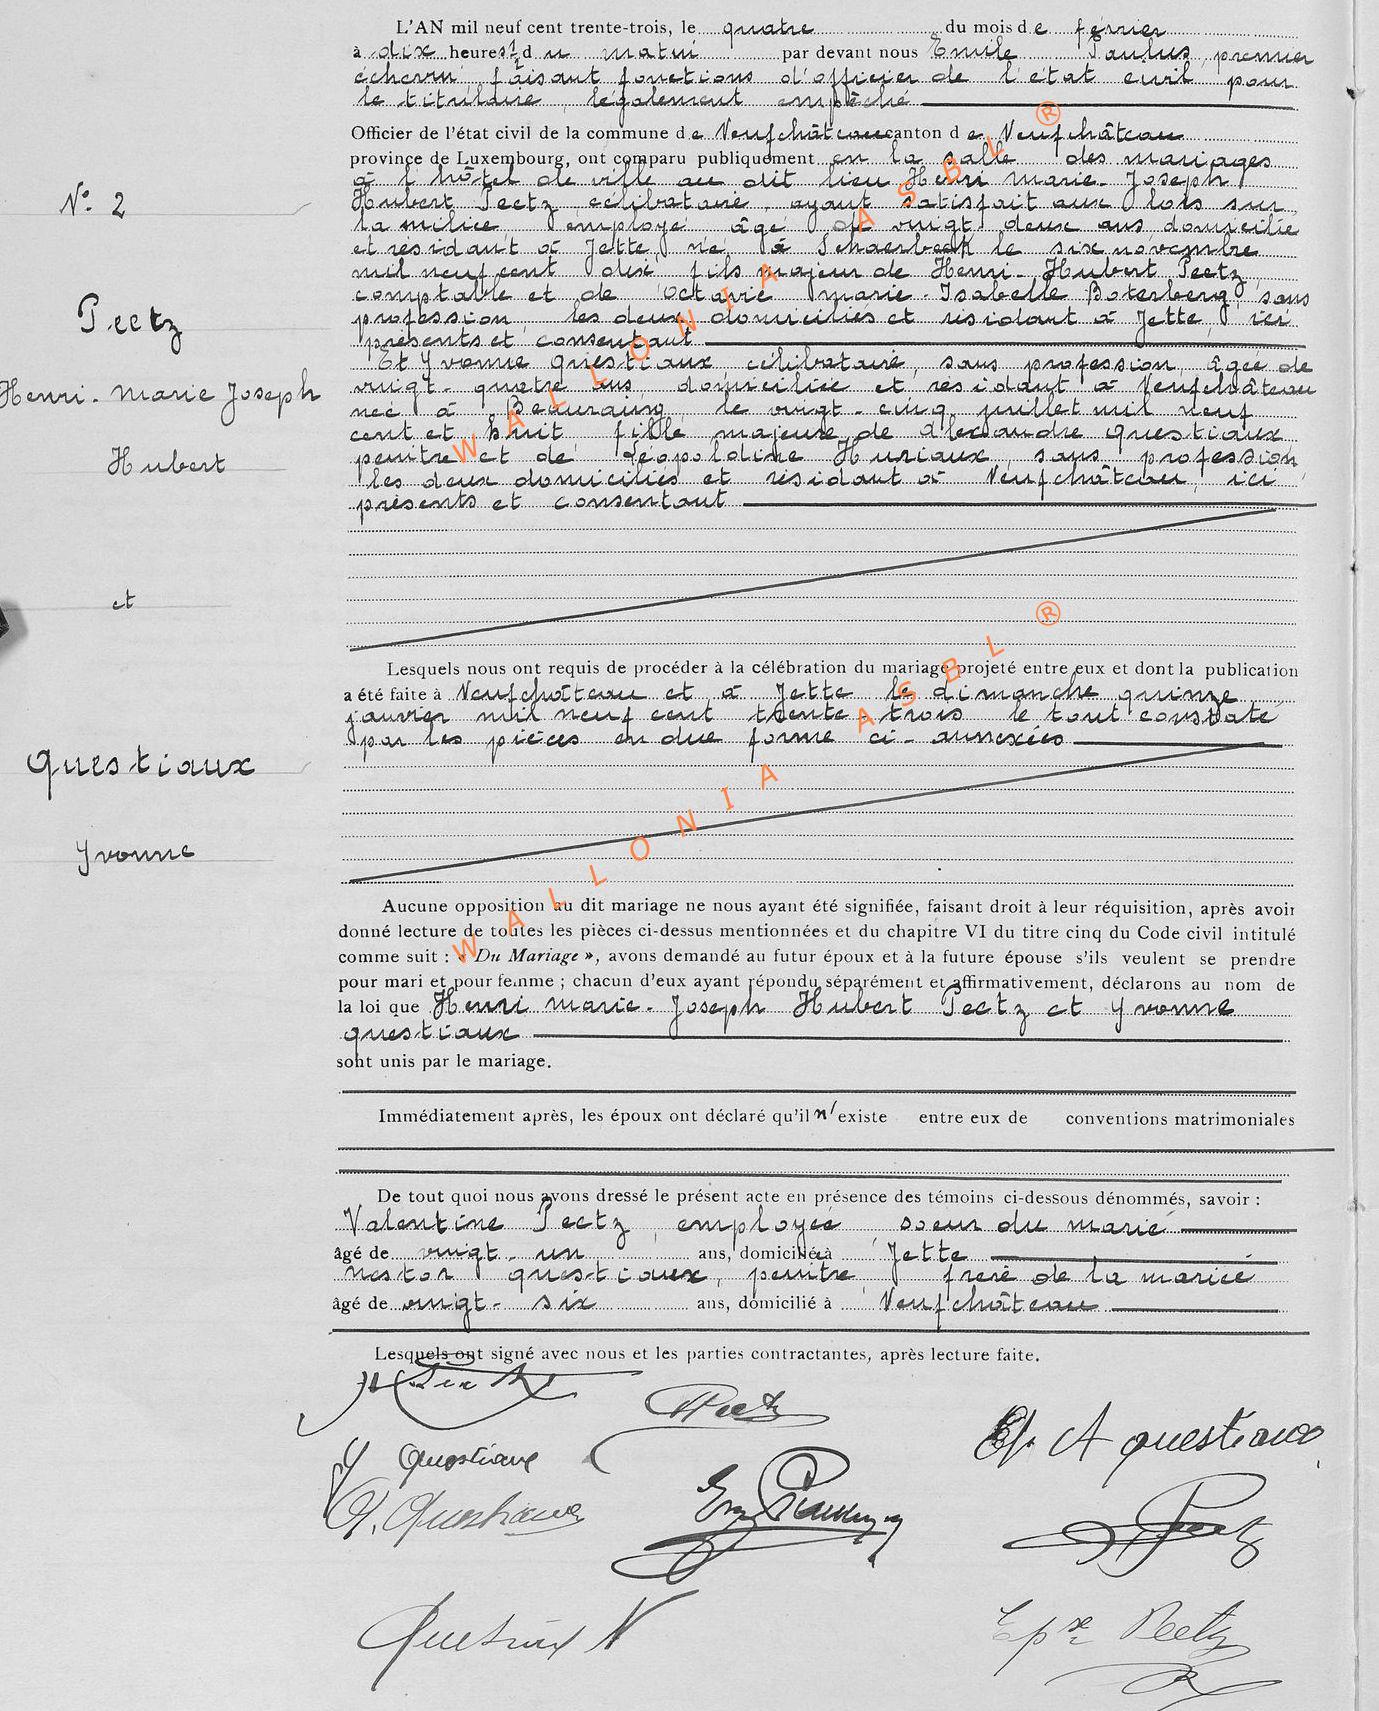 L'AN mil neuf cent trente-trois, le quatre du mois de février
à dix heures 1/2 du matin par devant nous Emile Paulus, premier
échevin, faisant fonctions d'officier de l'état civil pour
le titulaire, légalement empêché
Officier de l'état civil de la commune de Neufchâteau canton de Neufchâteau
province de Luxembourg, ont comparu publiquement en la salle des mariages
à l'hôtel de ville au dit lieu Henri Marie-Joseph
N° 2
Hubert Peetz célibataire, ayant satisfait aux lois sur
la milice, employé âgé de vingt deux ans domicilié
et résidant à Jette, né à Schaerbeek le six novembre
mil neuf cent dix fils majeur de Henri-Hubert Peetz,
comptable et de Octavie Marie-Isabelle Boterberg, sans
Peetz
profession, les deux domiciliés et résidant à Jette, ici
présents et consentant
Et Yvonne Questiaux célibataire, sans profession, âgée de
Henri-Marie Joseph
vingt-quatre ans domiciliée et résidant à Neufchâteau
née à Beauraing, le vingt-cinq juillet mil neuf
cent et huit fille majeure de Alexandre Questiaux
Hubert
peintre et de Léopoldine Huriaux, sans profession,
les deux domiciliés et résidant à Neufchâteau, ici
présents et consentant
et
Lesquels nous ont requis de procéder à la célébration du mariage projeté entre eux et dont la publication
a été faite à Neufchâteau et à Jette le dimanche quinze
janvier mil neuf cent trente-trois le tout constaté
par les pièces en due forme ci-annexées
Questiaux
Yvonne
Aucune opposition au dit mariage ne nous ayant été signifiée, faisant droit à leur réquisition, après avoir
donné lecture de toutes les pièces ci-dessus mentionnées et du chapitre VI du titre cinq du Code civil intitulé
comme suit : « Du Mariage », avons demandé au futur époux et à la future épouse s'ils veulent se prendre
pour mari et pour femme ; chacun d'eux ayant répondu séparément et affirmativement, déclarons au nom de
la loi que Henri Marie-Joseph Hubert Peetz et Yvonne
Questiaux
sont unis par le mariage.
Immédiatement après, les époux ont déclaré qu'il n'existe entre eux de conventions matrimoniales
De tout quoi nous avons dressé le présent acte en présence des témoins ci-dessous dénommés, savoir :
Valentine Peetz, employée soeur du marié
âgé de vingt-un ans, domiciliée à Jette
Nestor Questiaux, peintre frère de la mariée
âgé de vingt-six ans, domicilié à Neufchâteau
Lesquels ont signé avec nous et les parties contractantes, après lecture faite.
Peetz
Ep. A Questiaux
Y Questiaux
A. Questiaux
Peetz
Questiaux N
Epse Peetz
WALLONIA ASBL ®
WALLONIA ASBL ®